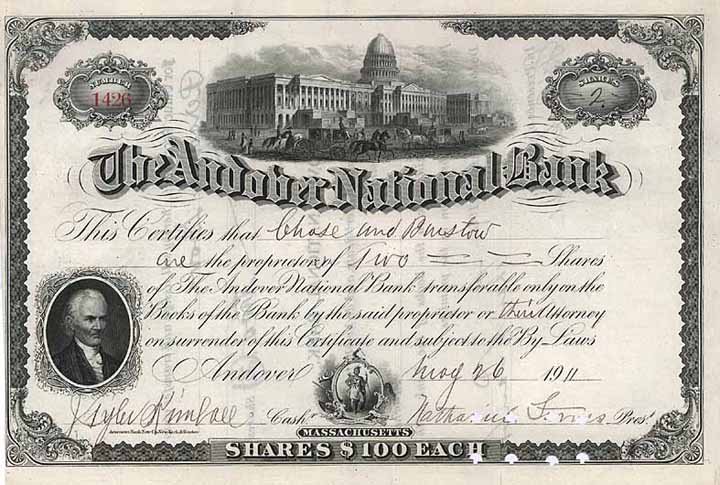 NUMBER
1426
SHARES
2.
The Andover National Bank
This Certifies that Chase and Barstow
are the proprietors of Two Shares
of The Andover National Bank transferable only on the
Books of the Bank by the said proprietor or their Attorney
on surrender of this Certificate and subject to the By-Laws
Andover May 26 1911
J. Tyler Kimball Cashr. Pres't.
MASSACHUSETTS
SHARES $100 EACH